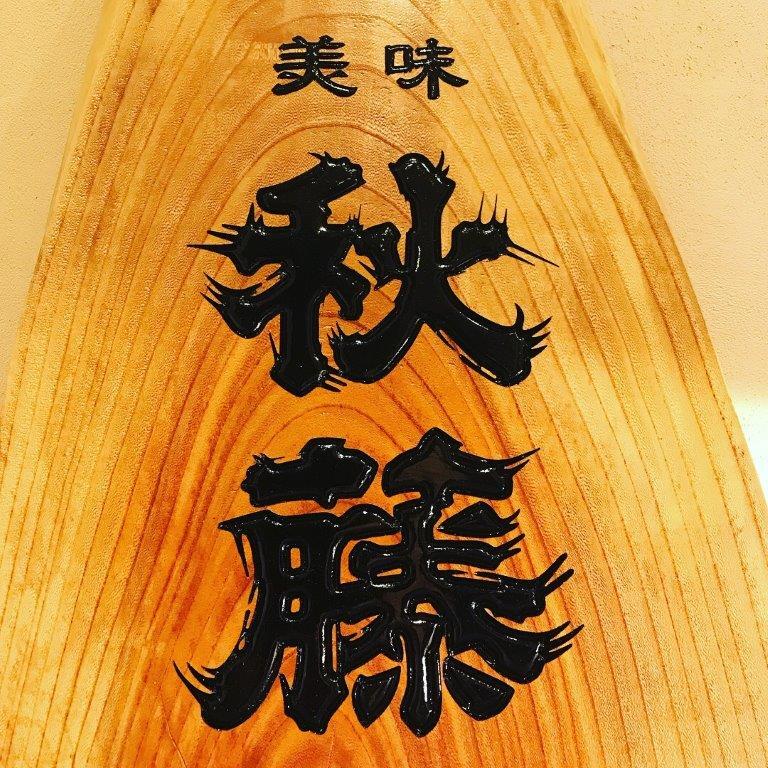 美味
秋
藤